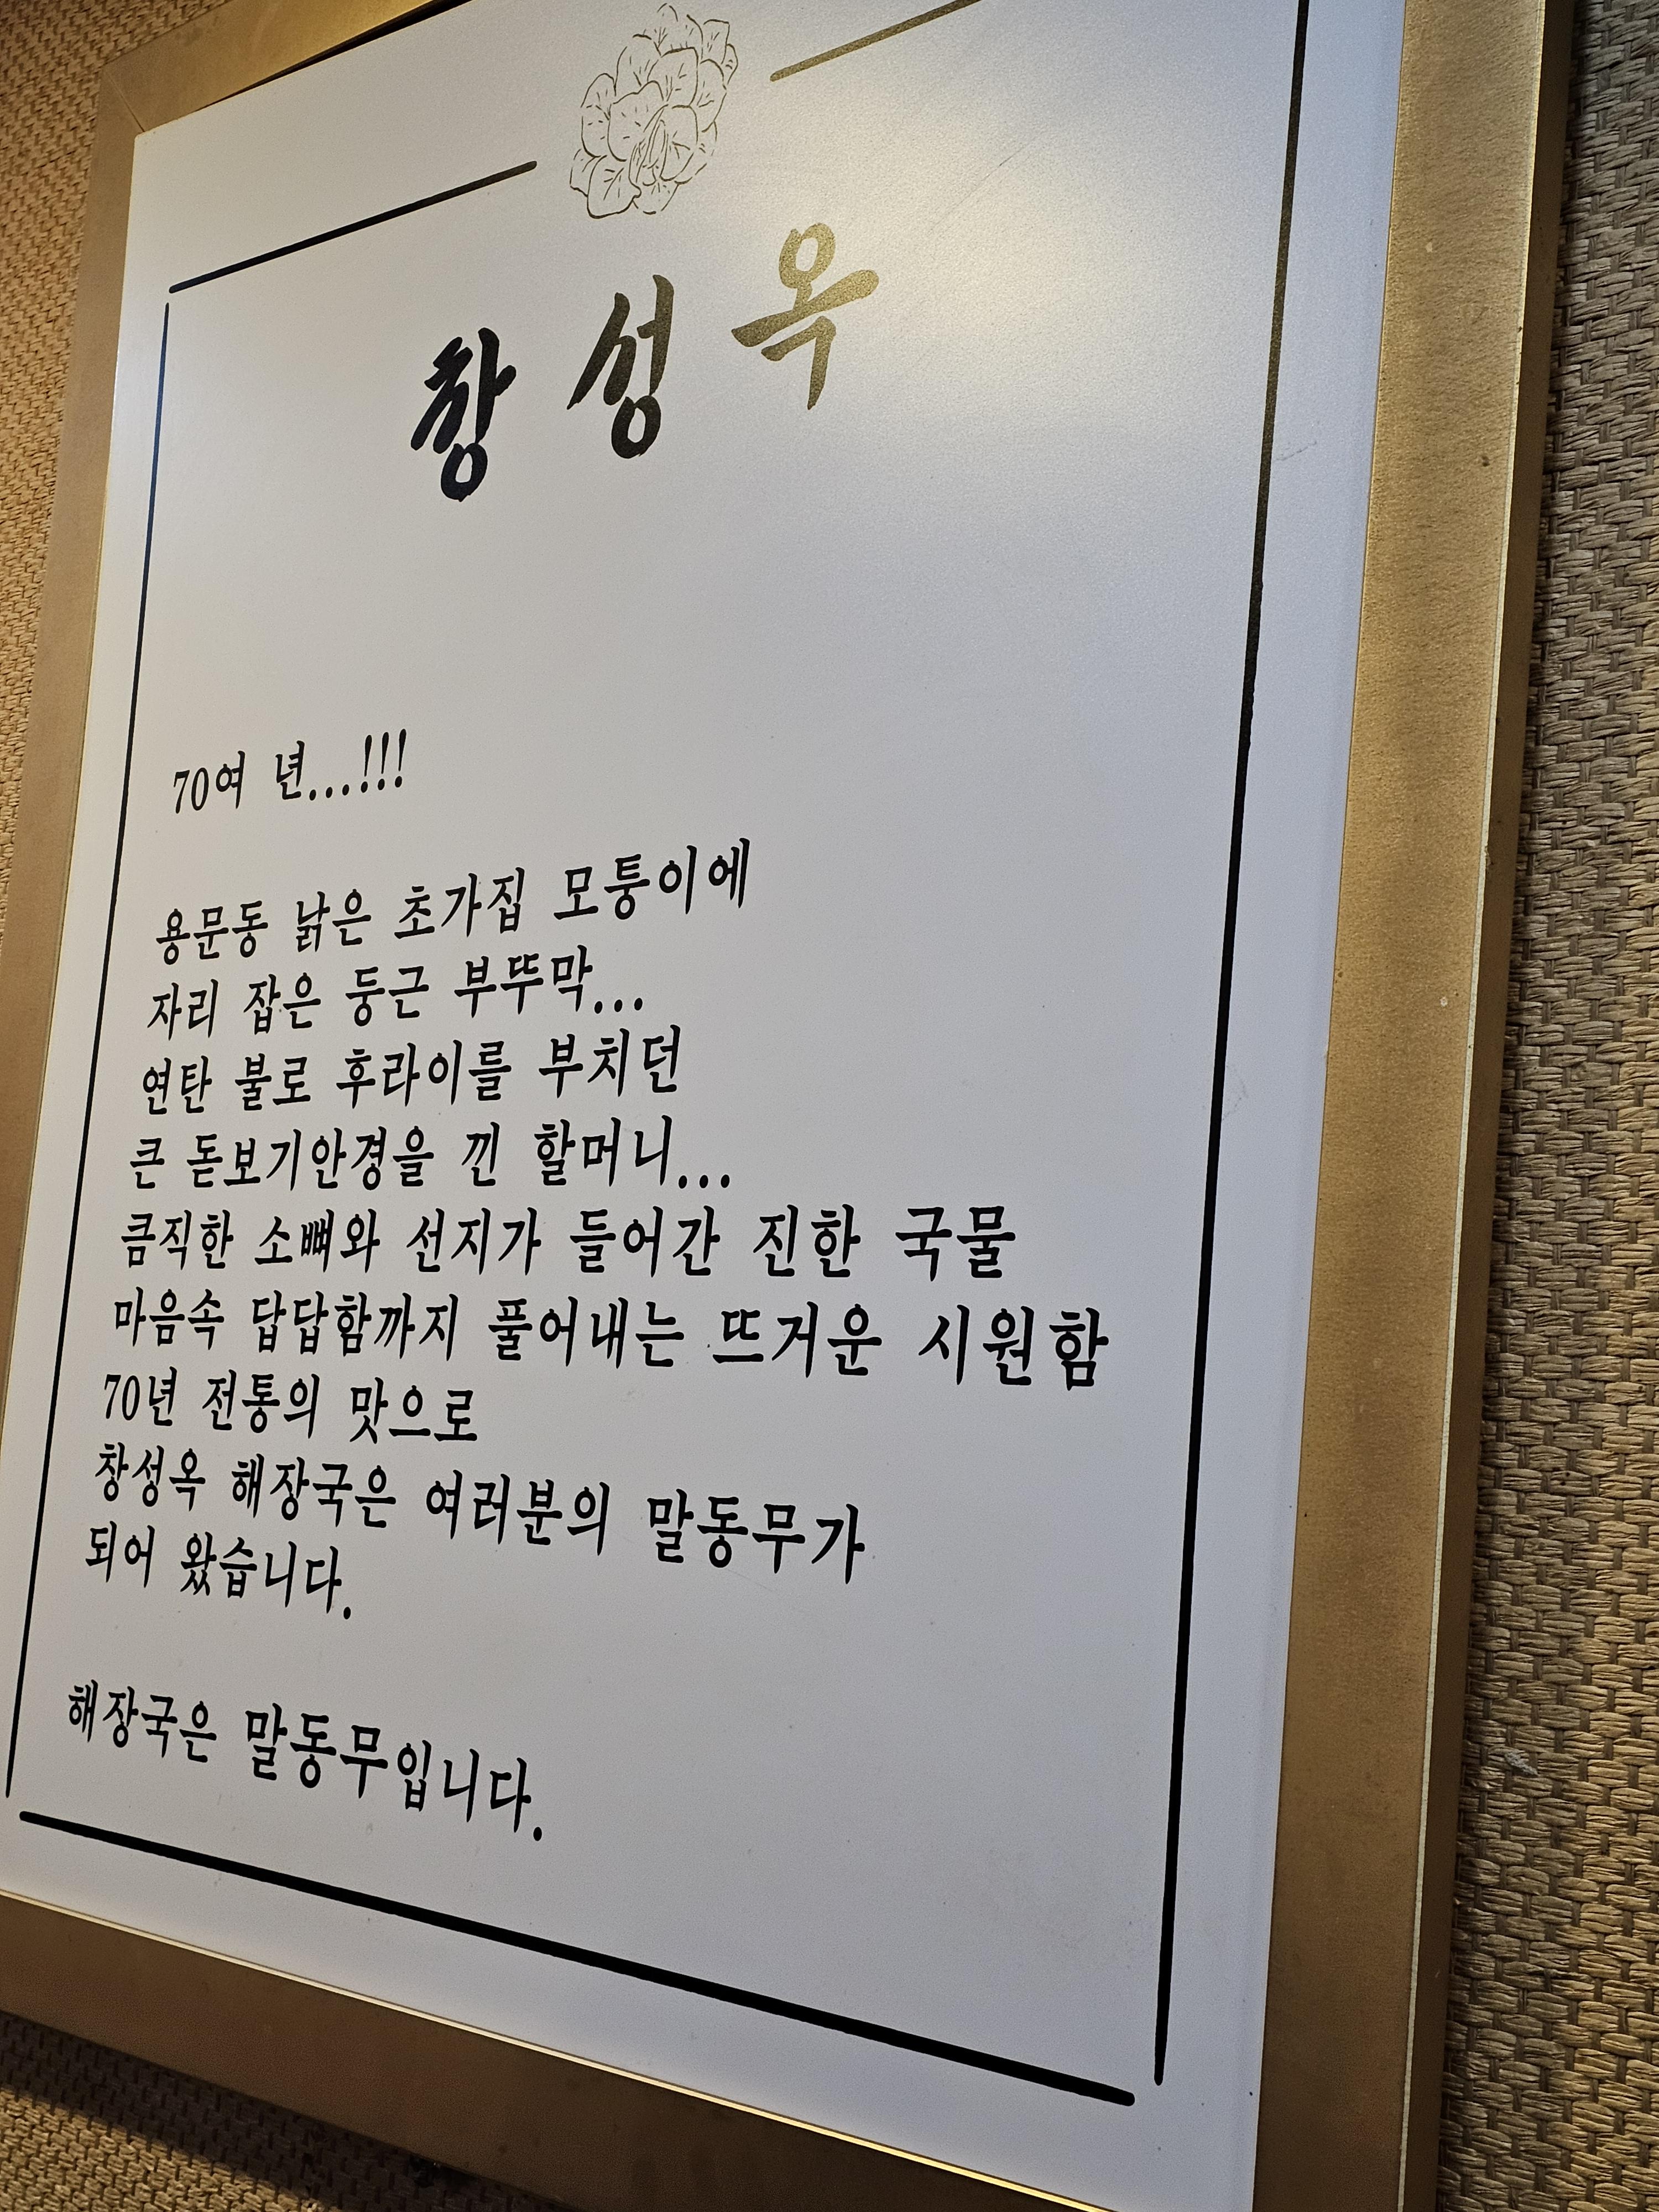 창성옥
70여 년...!!!
용문동 낡은 초가집 모퉁이에
자리 잡은 둥근 부뚜막...
연탄 불로 후라이를 부치던
큰 돋보기안경을 낀 할머니...
큼직한 소뼈와 선지가 들어간 진한 국물
마음속 답답함까지 풀어내는 뜨거운 시원함
70년 전통의 맛으로
창성옥 해장국은 여러분의 말동무가
되어 왔습니다.
해장국은 말동무입니다.